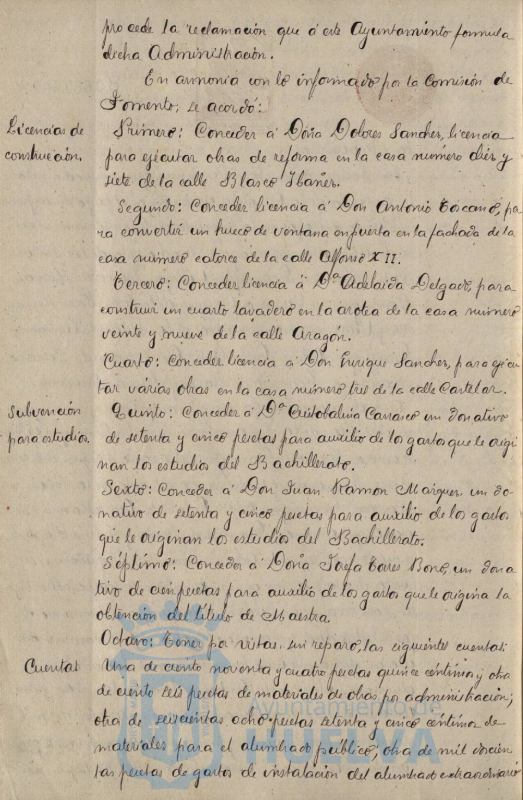 procede la reclamación que á este Ayuntamiento formula
dicha Administración.
En armonia con lo informado por la Comisión de
Fomento, se acordó:
Licencias de
construcción.
Primero: Conceder á Doña Dolores Sanchez, licencia
para ejecutar obras de reforma en la casa número diez y
siete de la calle Blasco Ibañez.
Segundo: Conceder licencia á Don Antonio Toscano, pa
ra convertir un hueco de ventana en puerta en la fachada de la
casa número catorce de la calle Alfonso XII.
Tercero: Conceder licencia á Dª Adelaida Delgado, para
construir un cuarto lavadero en la azotea de la casa número
veinte y nueve de la calle Aragón.
Cuarto: Conceder licencia á Don Enrique Sanchez, para ejecu
tar várias obras en la casa número tres de la calle Castelar.
Subvención
para estudios.
Quinto: Conceder á Dª Cristobalina Carrasco un donativo
de setenta y cinco pesetas para auxilio de los gastos que le origi
nan los estudios del Bachillerato.
Sexto: Conceder á Don Juan Ramon Maiquez, un do-
nativo de setenta y cinco pesetas para auxilio de los gastos
que le originan los estudios del Bachillerato.
Séptimo: Conceder á Doña Josefa Torres Bono, un dona
tivo de cien pesetas para auxilio de los gastos que le origina la
obtención del título de Maestra.
Cuentas
Octavo: Tener por vistas, sin reparo, las siguientes cuentas:
Una de ciento noventa y cuatro pesetas quince céntimos y otra
de ciento seis pesetas de materiales de obras por administración;
otra de seiscientas ocho pesetas setenta y cinco céntimos de
materiales para el alumbrado público; otra de mil doscien
tas pesetas de gastos de instalación del alumbrado extraordinario
Ayuntamiento de
HUELVA